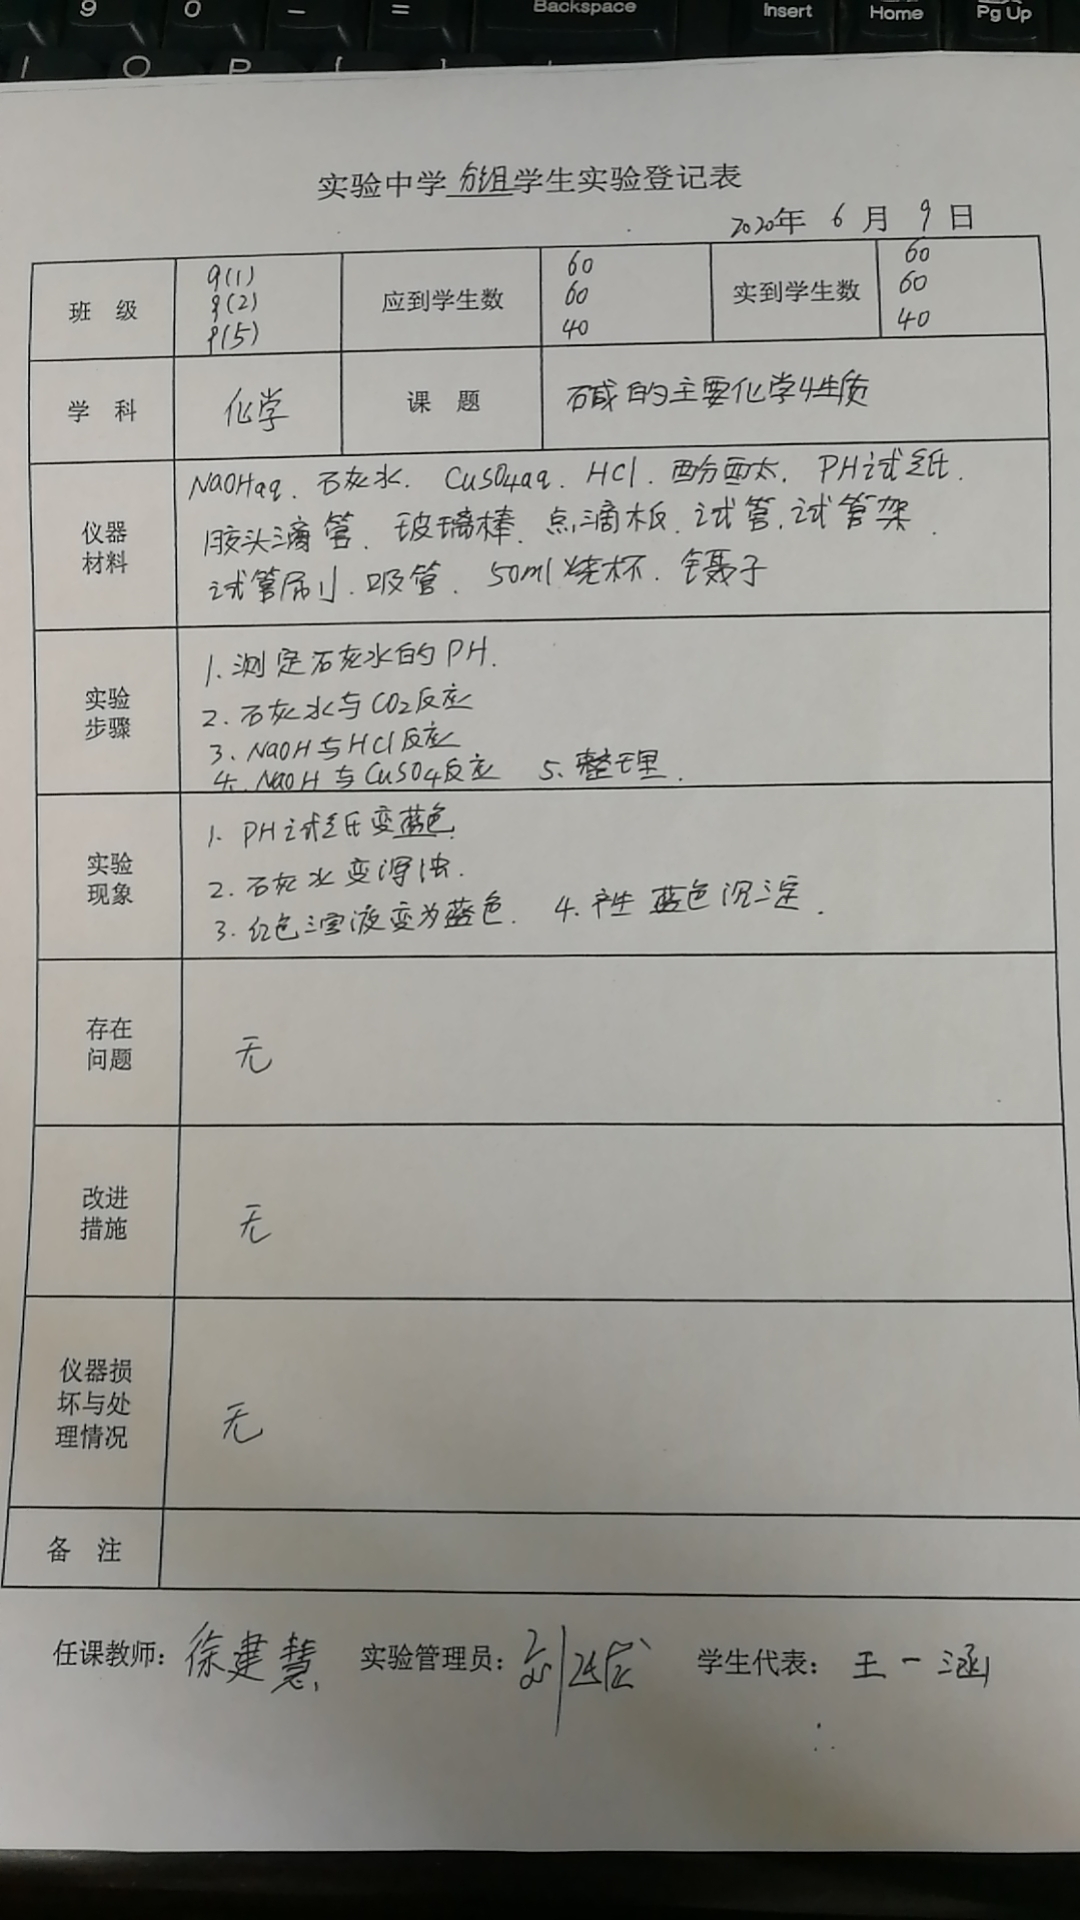 9 0 - = Backspace Insert Home Pg Up
I O P [ ]
实验中学分组学生实验登记表
2020年 6 月 9 日
班 级 9(1) 9(2) 9(5) 应到学生数 60 60 40 实到学生数 60 60 40
学 科 化学 课 题 碱的主要化学性质
仪器材料
NaOHaq、石灰水、CuSO4aq、HCl、酚酉太、PH试纸、
胶头滴管、玻璃棒、点滴板、试管、试管架、
试管刷、吸管、50ml烧杯、镊子
实验步骤
1. 测定石灰水的PH.
2. 石灰水与CO2反应
3. NaOH与HCl反应
4. NaOH与CuSO4反应 5. 整理.
实验现象
1. PH试纸变蓝色.
2. 石灰水变浑浊.
3. 红色溶液变为蓝色. 4. 产生蓝色沉淀.
存在问题 无
改进措施 无
仪器损坏与处理情况 无
备 注
任课教师：徐建慧 实验管理员： 学生代表：王一涵